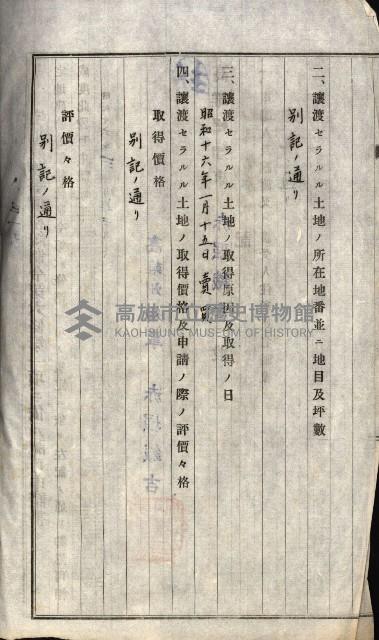 二、讓渡セラルル土地ノ所在地番並ニ地目及坪數
別記ノ通リ
三、讓渡セラルル土地ノ取得原因及取得ノ日
昭和十六年一月十五日賣買
四、讓渡セラルル土地ノ取得價格及申請ノ際ノ評價々格
取得價格
別記ノ通リ
評價々格
別記ノ通リ
高雄市立歷史博物館
KAOHSIUNG MUSEUM OF HISTORY